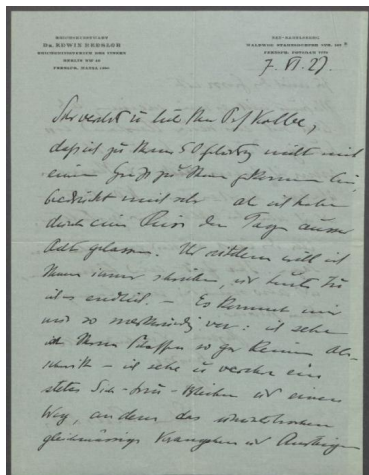 REICHSKUNSTWART
DR. EDWIN REDSLOB
REICHSMINISTERIUM DES INNERN
BERLIN NW 40
7. VI. 27.
Sehr verehrter lieber Herr Prof Kolbe,
dass ich zu Ihrem 50 Geburtstag nicht mit
einem Gruss zu Ihnen gekommen bin,
bedrückt mich sehr ich habe
durch eine Reise den Tag ausser
Acht gelassen. Und seitdem will ich
Ihnen immer schreiben, und heute tu
ich es endlich. – Es kommt mir
nur so merkwürdig vor: ich sehe
in Ihrem Schaffen so gar keinen Ab-
schnitt – ich sehe u verehre ein
stetes Sich-treu-Bleiben und einen
Weg, an dem das
gleichmässige Vorangehen und Ansteigen